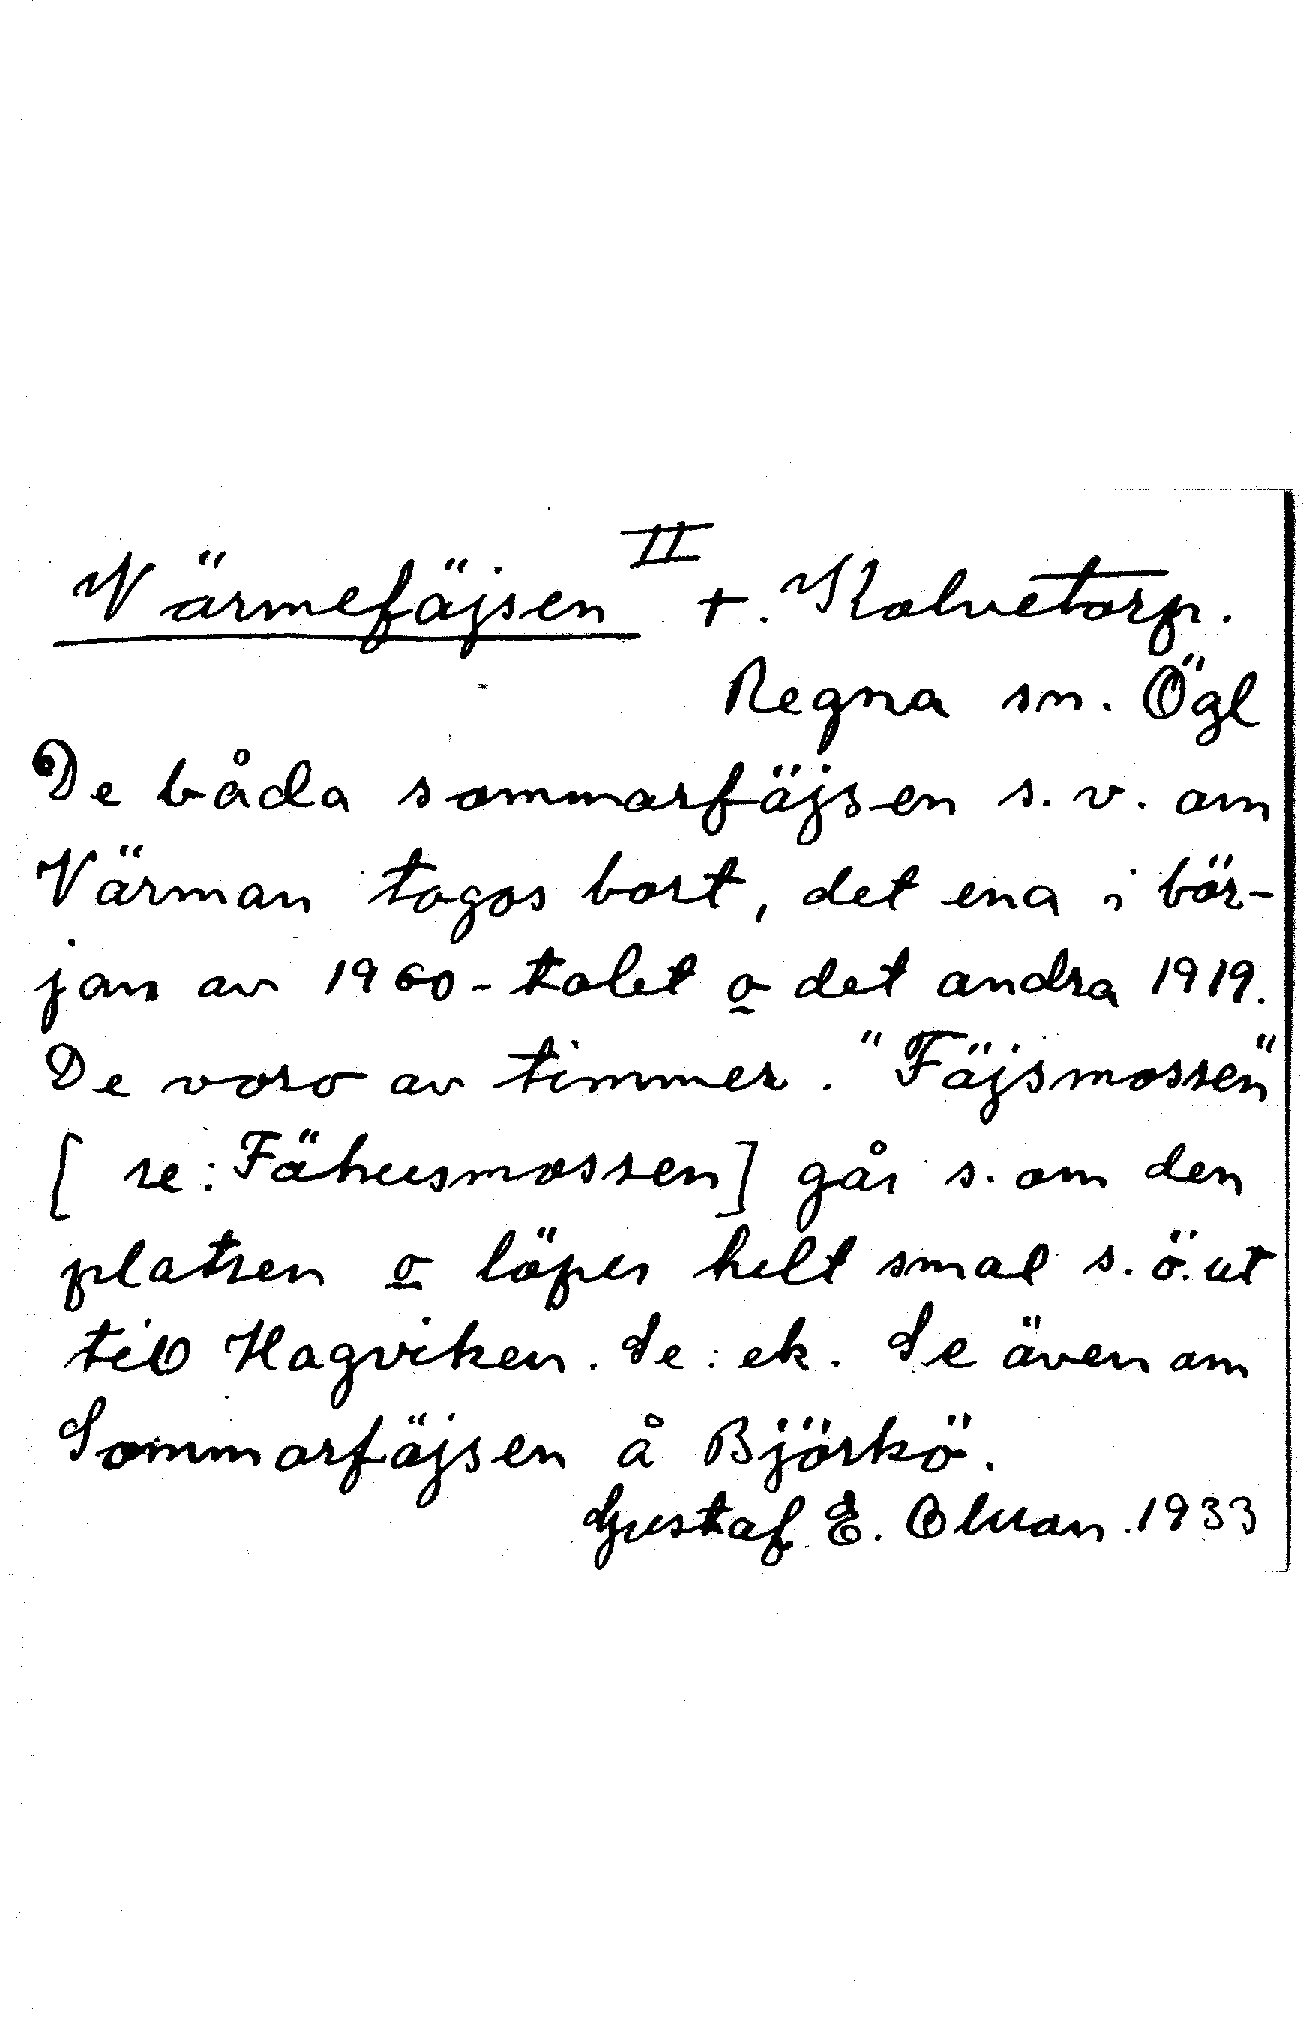 Värmefäjsen II t. Kalvetorp.
Regna sn. Ögl
De båda sommarfäjsen s.v. om
Värman togos bort, det ena i bör-
jan av 1960-talet o det andra 1919.
De voro av timmer. "Fäjsmossen"
[se: Fähusmossen] går s. om den
platsen o löper helt smal s.ö. ut
till Hagviken. Se: ek. Se även om
Sommarfäjsen å Björkö.
Gustaf E. 1933